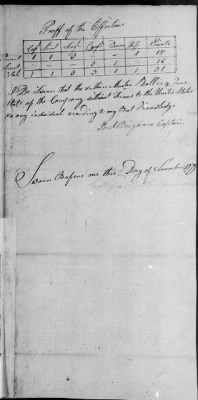 Proof of the Effective
Capt Lieut Serjt Corpl Drum Fife Privates
1 1 3 — — 1 15
— — — 3 1 — 16
1 1 3 3 1 1 31
I Do Swear that the within Muster Roll is a True
State of the Company without Fraud to the United States
or any individual according to my Best Knowledge
Bingham Captain
Sworn Before me this Day of 177